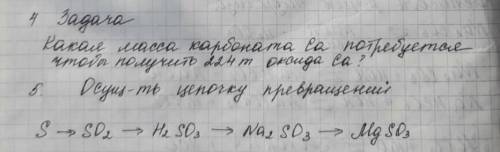 4 Задача
Какая масса карбоната Ca потребуется
чтобы получить 224 т оксида Ca?
5. Осущ-ть цепочку превращений
S → SO2 → H2SO3 → Na2SO3 → MgSO3